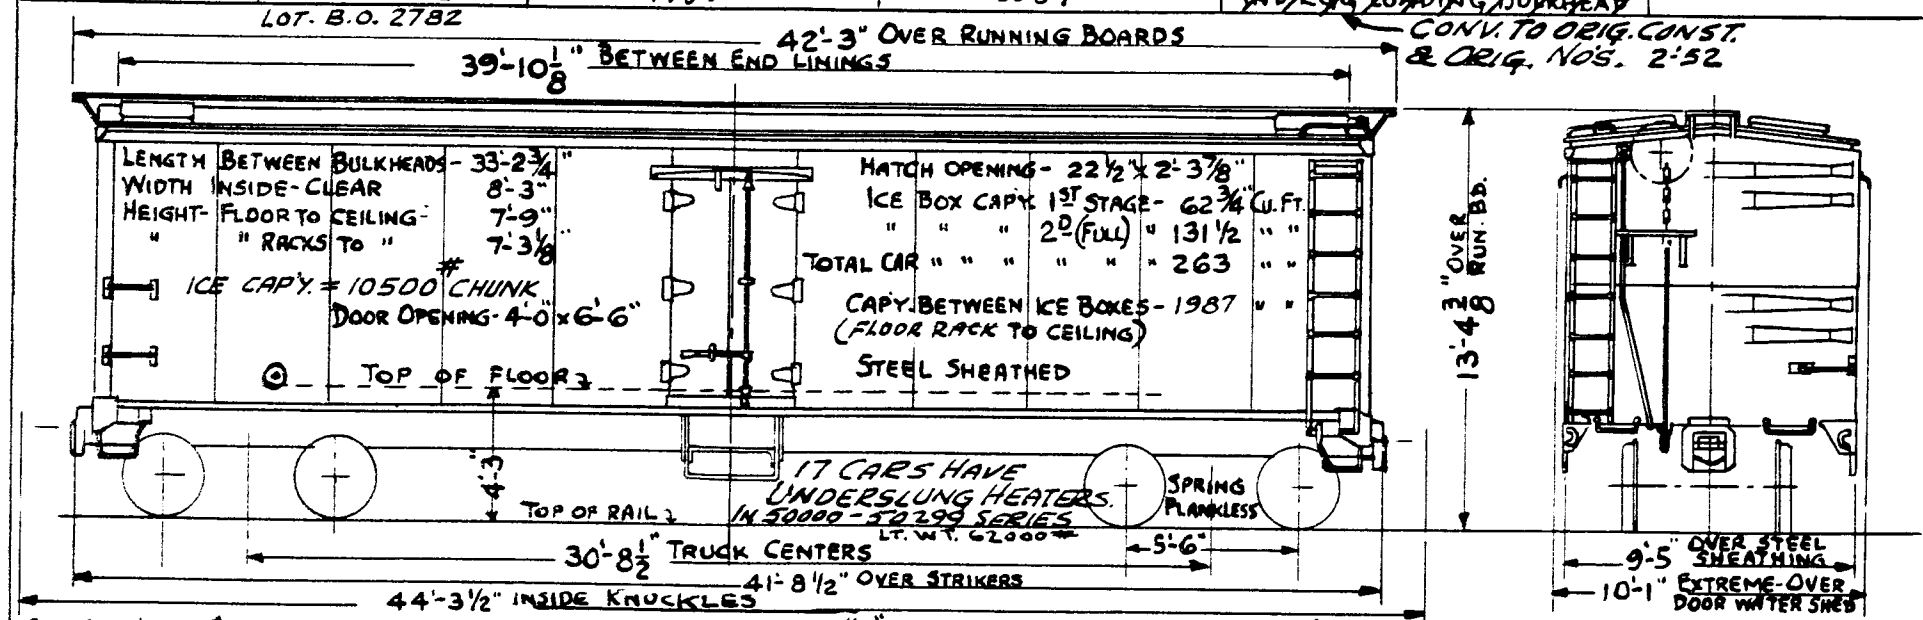 LOT. B.O. 2782
42'-3" OVER RUNNING BOARDS
CONV. TO ORIG. CONST.
& ORIG. NO'S. 2-52
39'-10 1/8" BETWEEN END LININGS
LENGTH BETWEEN BULKHEADS - 33'-2 3/4"
WIDTH INSIDE-CLEAR 8'-3"
HEIGHT- FLOOR TO CEILING- 7'-9"
" " RACKS TO " 7'-3 1/8"
ICE CAP'Y. = 10500# CHUNK
DOOR OPENING- 4'-0" x 6'-6"
HATCH OPENING - 22 1/2" x 2'-3 7/8"
ICE BOX CAPY. 1ST STAGE - 62 3/4" CU. FT.
" " " 2D (FULL) " 131 1/2 " "
TOTAL CAR " " " " " " 263 " "
CAPY. BETWEEN ICE BOXES - 1987 " "
(FLOOR RACK TO CEILING)
STEEL SHEATHED
TOP OF FLOOR
13'-4 3/8" OVER
RUN. BD.
4'-3"
TOP OF RAIL
17 CARS HAVE
UNDERSLUNG HEATERS.
IN 50000-50299 SERIES
LT. WT. 62000#
SPRING
PLANKLESS
30'-8 1/2" TRUCK CENTERS
5'-6"
41'-8 1/2" OVER STRIKERS
44'-3 1/2" INSIDE KNUCKLES
9'-5" OVER STEEL
SHEATHING
10'-1" EXTREME-OVER
DOOR WATER SHED